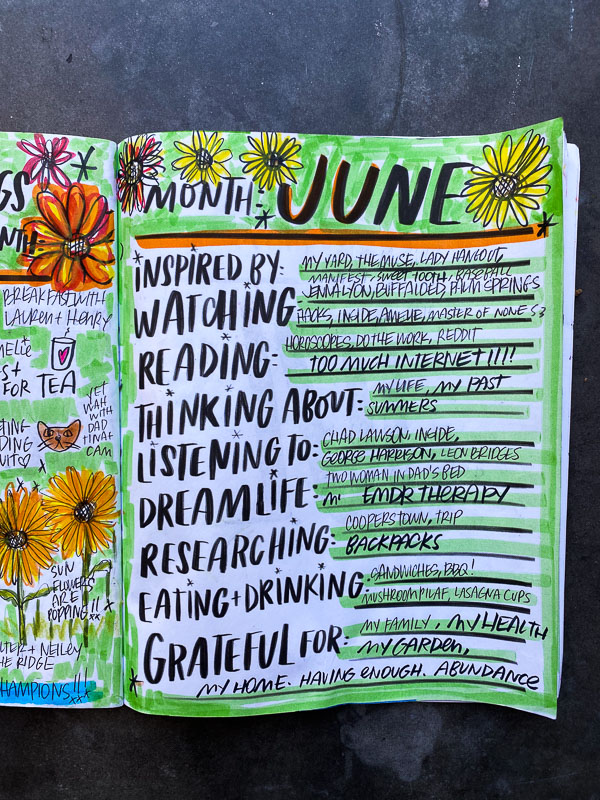 GS
NTH:
BREAKFAST WITH
LAUREN + HENRY
FOR TEA
VET
WITH
DAD
CAM
SUN
FLOWERS
ARE
POPPING!!
XX
NEILEY
HE RIDGE
CHAMPIONS!!
XXX
MONTH: JUNE
INSPIRED BY: MY YARD, THE MUSE, LADY HANGOUT,
MANIFEST, SWEET TOOTH, BASEBALL
WATCHING JENNA LYON, BUFFALOED, PALM SPRINGS
HACKS, INSIDE, AMELIE, MASTER OF NONE S3
READING: HOROSCOPES, DO THE WORK, REDDIT
TOO MUCH INTERNET!!!!
THINKING ABOUT: MY LIFE, MY PAST
SUMMERS
LISTENING TO: CHAD LAWSON, INSIDE,
GEORGE HARRISON, LEON BRIDGES
DREAM LIFE: TWO WOMAN IN DAD'S BED
EMDR THERAPY
RESEARCHING: COOPERSTOWN, TRIP
BACKPACKS
EATING + DRINKING: SANDWICHES, BBQ!
MUSHROOM PILAF, LASAGNA CUPS
GRATEFUL FOR: MY FAMILY, MY HEALTH
MY GARDEN,
MY HOME. HAVING ENOUGH. ABUNDANCE